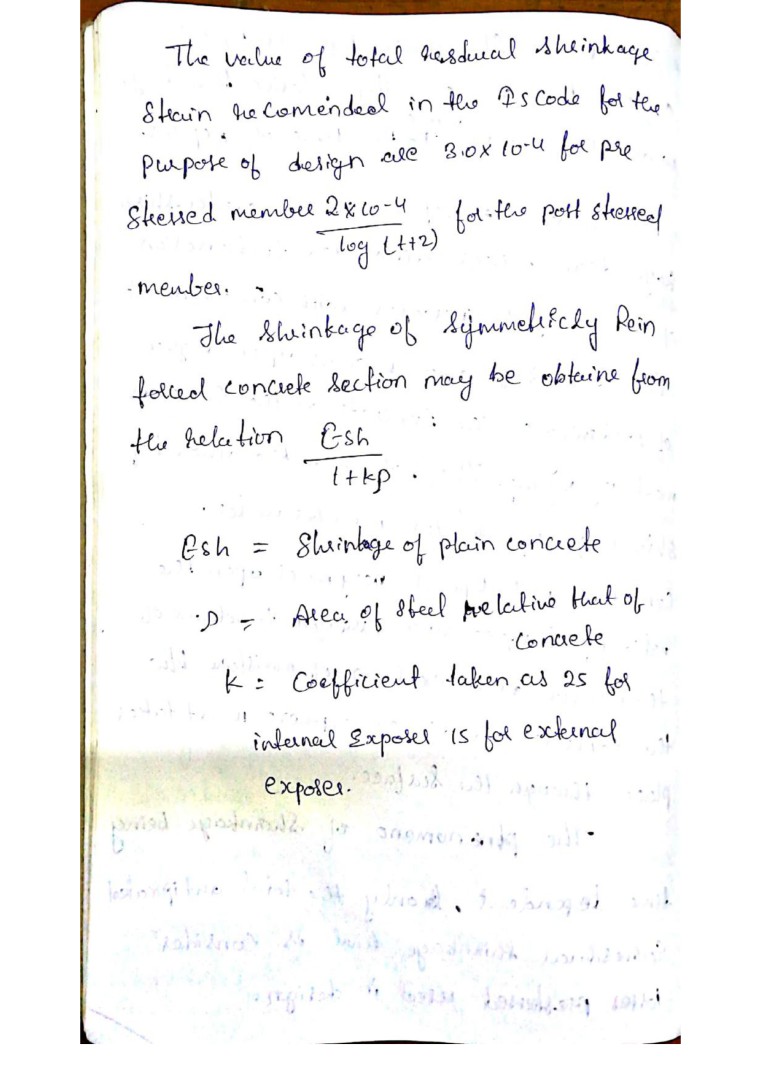 The value of total resdual shrinkage
Strain recomended in the IS Code for the
purpose of design are 3.0x 10-4 for pre
Stressed member 2x10-4 / log (t+2) for the post stressed
member.
The shrinkage of symmetricly Rein
forced concrete section may be obtaine from
the relation Esh / 1+kp.
Esh = Shrinkage of plain concrete
p = Area of steel relative that of
concrete
K = Coefficient taken as 25 for
internal Exposer 15 for external
exposer.